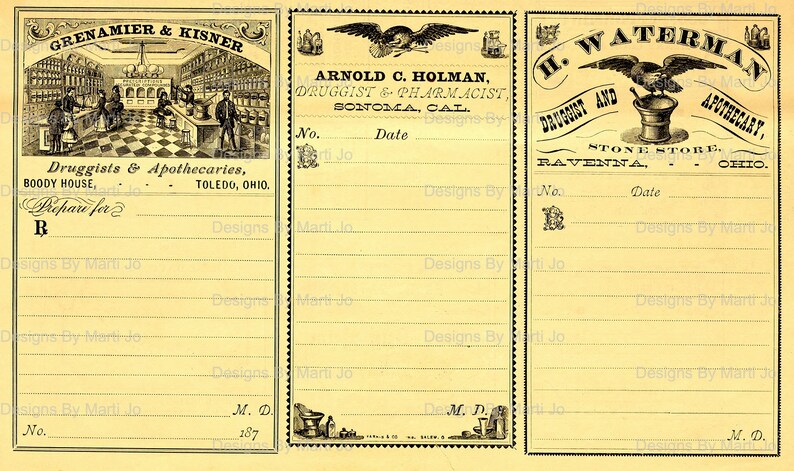 GRENAMIER & KISNER
PRESCRIPTIONS
Druggists & Apothecaries,
BOODY HOUSE, - - - TOLEDO, OHIO.
Prepare for
R
M. D.
No. 187
ARNOLD C. HOLMAN,
DRUGGIST & PHARMACIST,
SONOMA, CAL.
No. Date
R
M. D.
H. WATERMAN
DRUGGIST AND APOTHECARY,
STONE STORE,
RAVENNA, - - OHIO.
No. Date
R
M. D.
Designs By Marti Jo